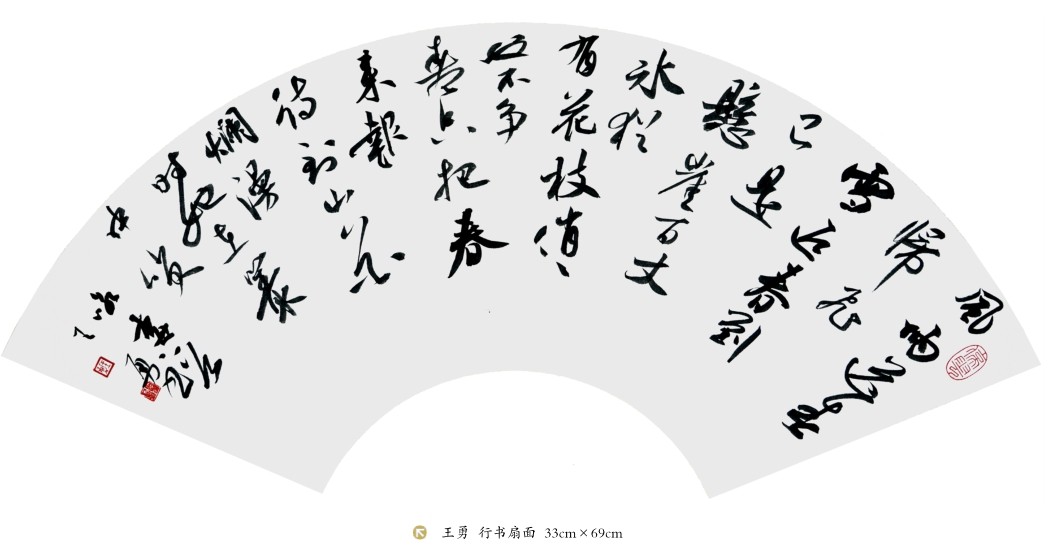 風雨送春
归飞
雪迎春到
已是
懸崖百丈
冰猶
有花枝俏〻
也不争
春只把春
来報
待到山花
爛漫
時她在叢
中笑
王勇 行书扇面 33cm×69cm